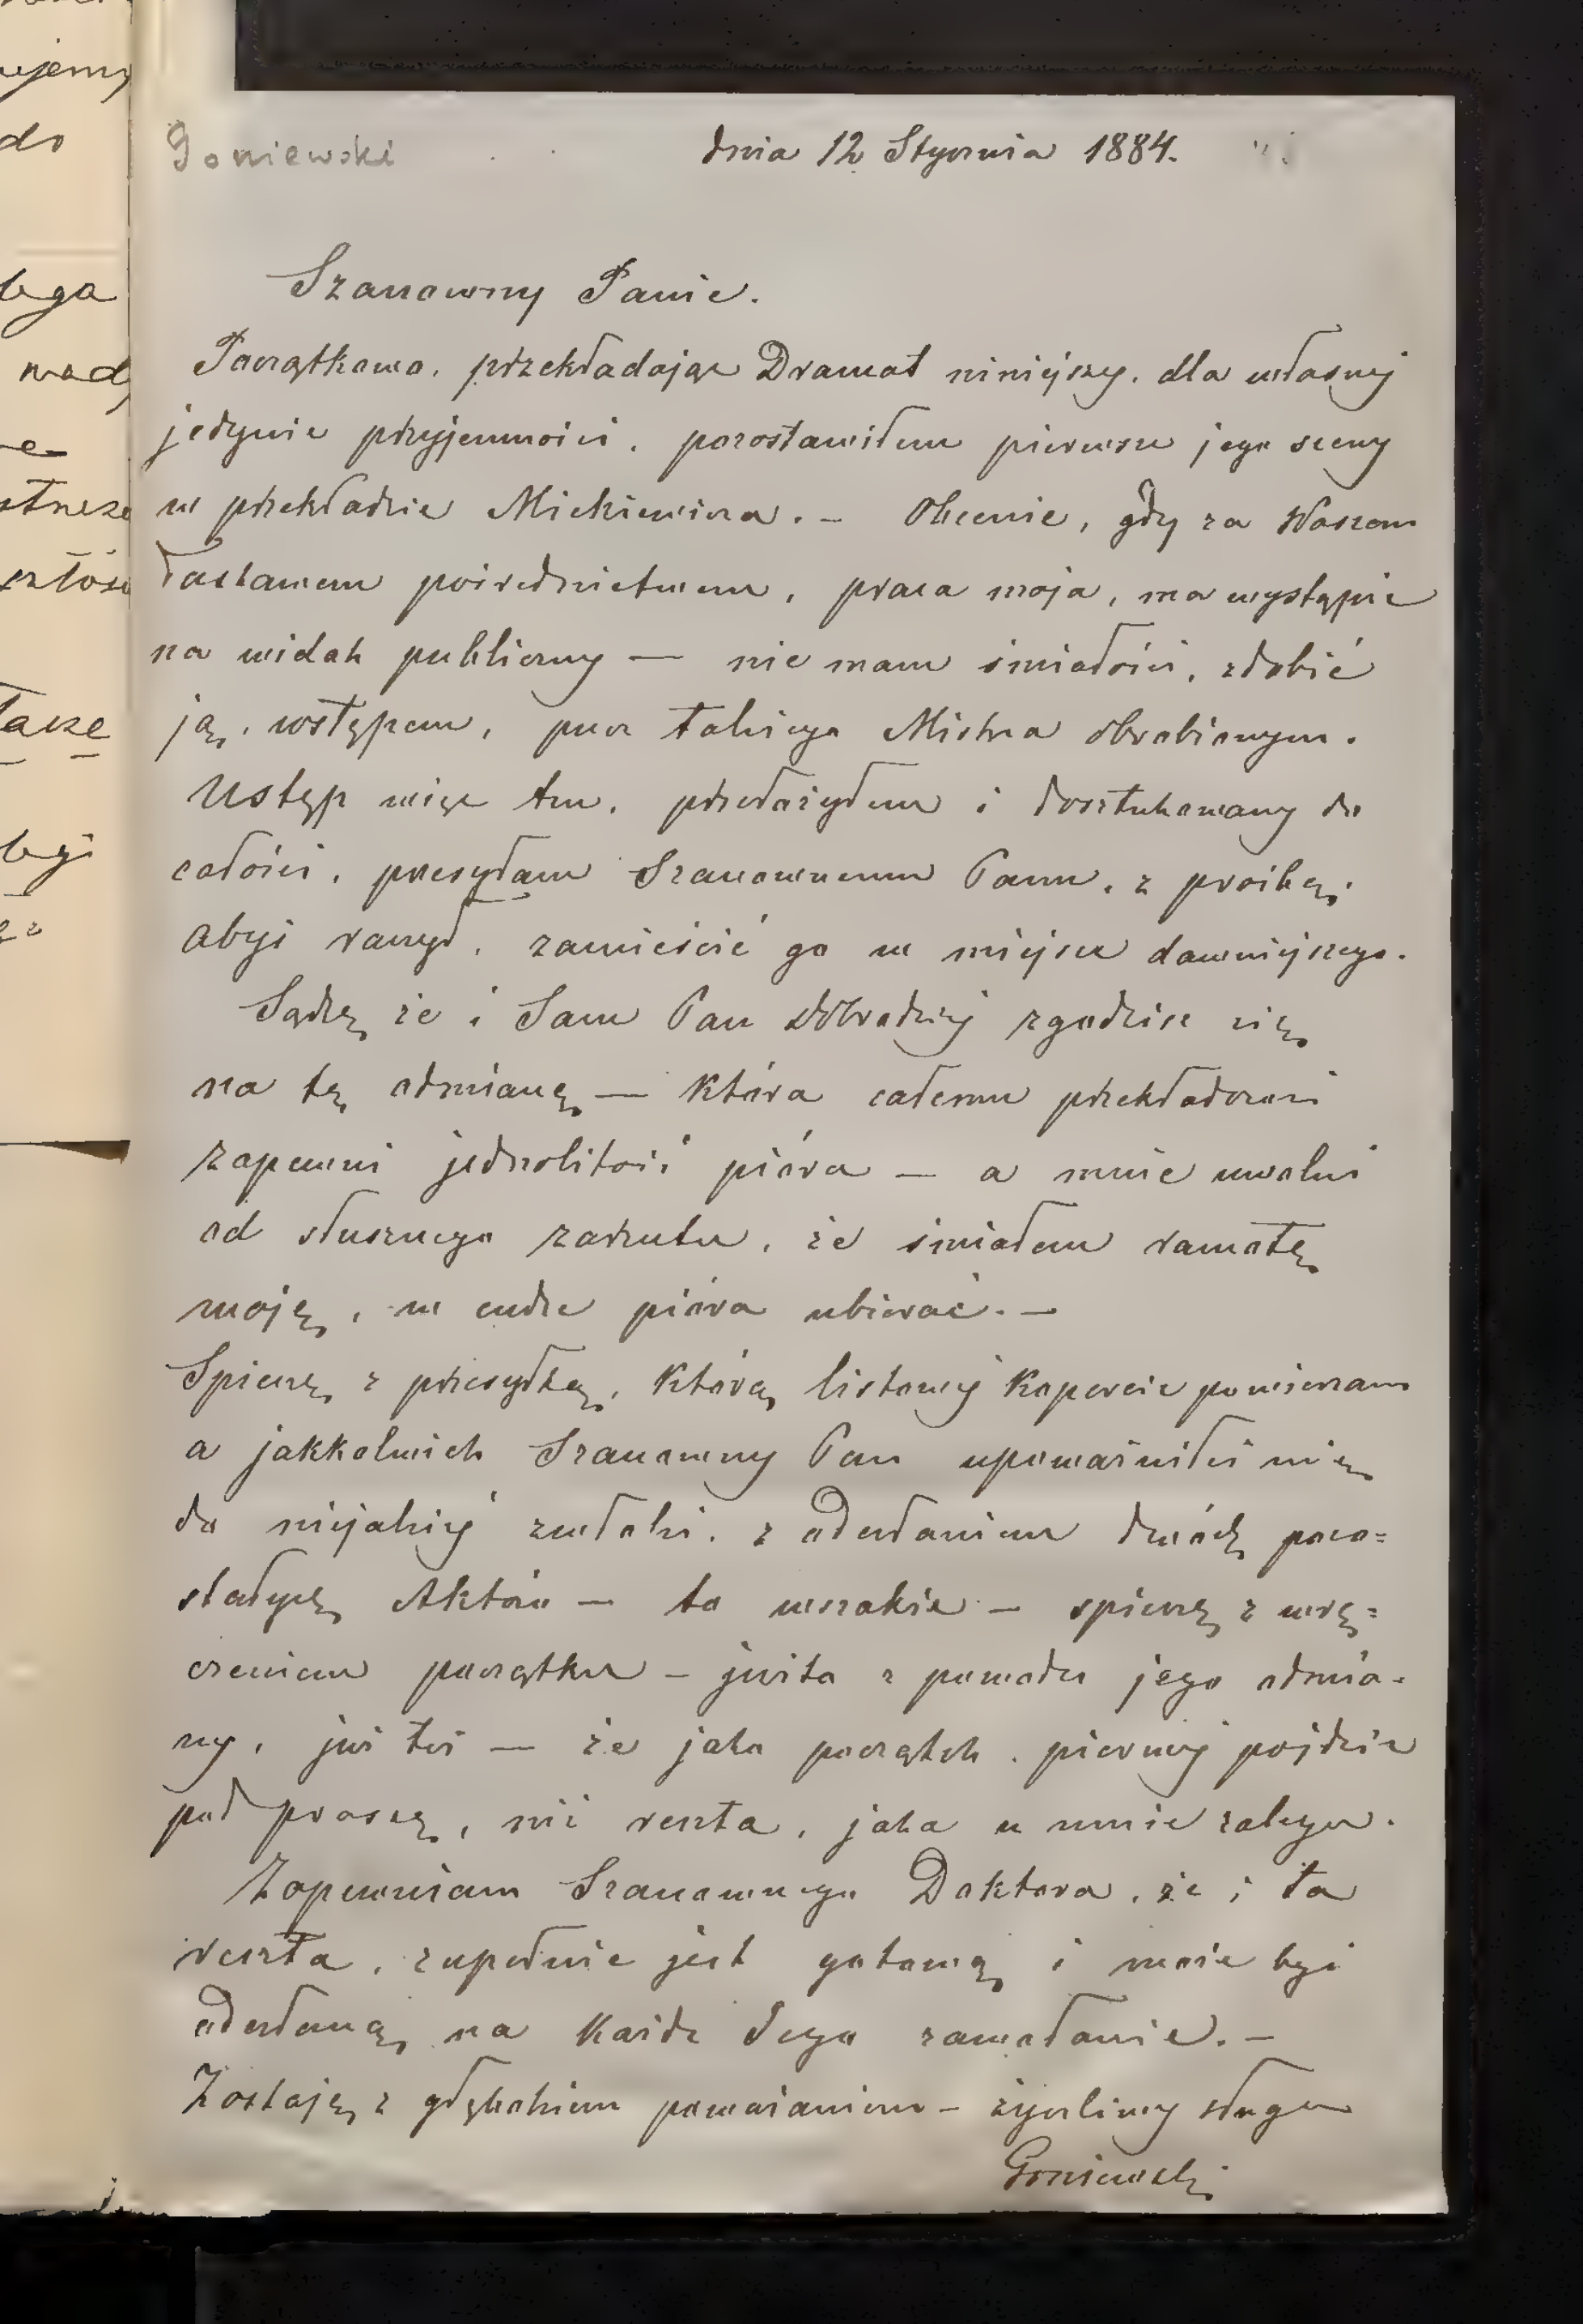 ujemy
do
Goniewski
dnia 12 Stycznia 1884.
Szanowny Panie.
Początkowo, przekładając Dramat niniejszy, dla własnej
jedynie przyjemności, pozostawiłem pierwsze jego sceny
w przekładzie Mickiewicza. – Obecnie, gdy za Waszem
łaskawem pośrednictwem, praca moja, ma wystąpić
na widok publiczny — nie mam śmiałości, zdobić
ją, wstępem, przez takiego Mistrza obrobionym.
Ustęp więc ten, przełożyłem i dosztukowany do
całości, przesyłam Szanownemu Panu, z prośbą,
abyś raczył, zamieścić go w miejsce dawniejszego.
Sądzę że i Sam Pan Dobrodziej zgodzisz się
na tę odmianę — która całemu przekładowi
zapewni jednolitość pióra — a mnie uwolni
od słusznego zarzutu, że śmiałem ramotę
moję, w cudze pióra ubierać. —
Spieszę z przesyłką, którą listowej kopercie powierzam
a jakkolwiek Szanowny Pan upoważniłeś mię
do niejakiej zwłoki, z odesłaniem dwóch pozo=
stałych Aktów — to wszakże — spieszę z wrę=
czeniem początku – jużto z powodu jego odmia-
ny, już też — że jako początek, pierwej pójdzie
pod prasę, niż reszta, jaka u mnie zalega.
Zapewniam Szanownego Doktora, że i ta
reszta, zupełnie jest gotową i może być
odesłaną na każde Jego zawołanie. –
Zostaję z głębokiem poważaniem – życzliwy sługa
Goniewski